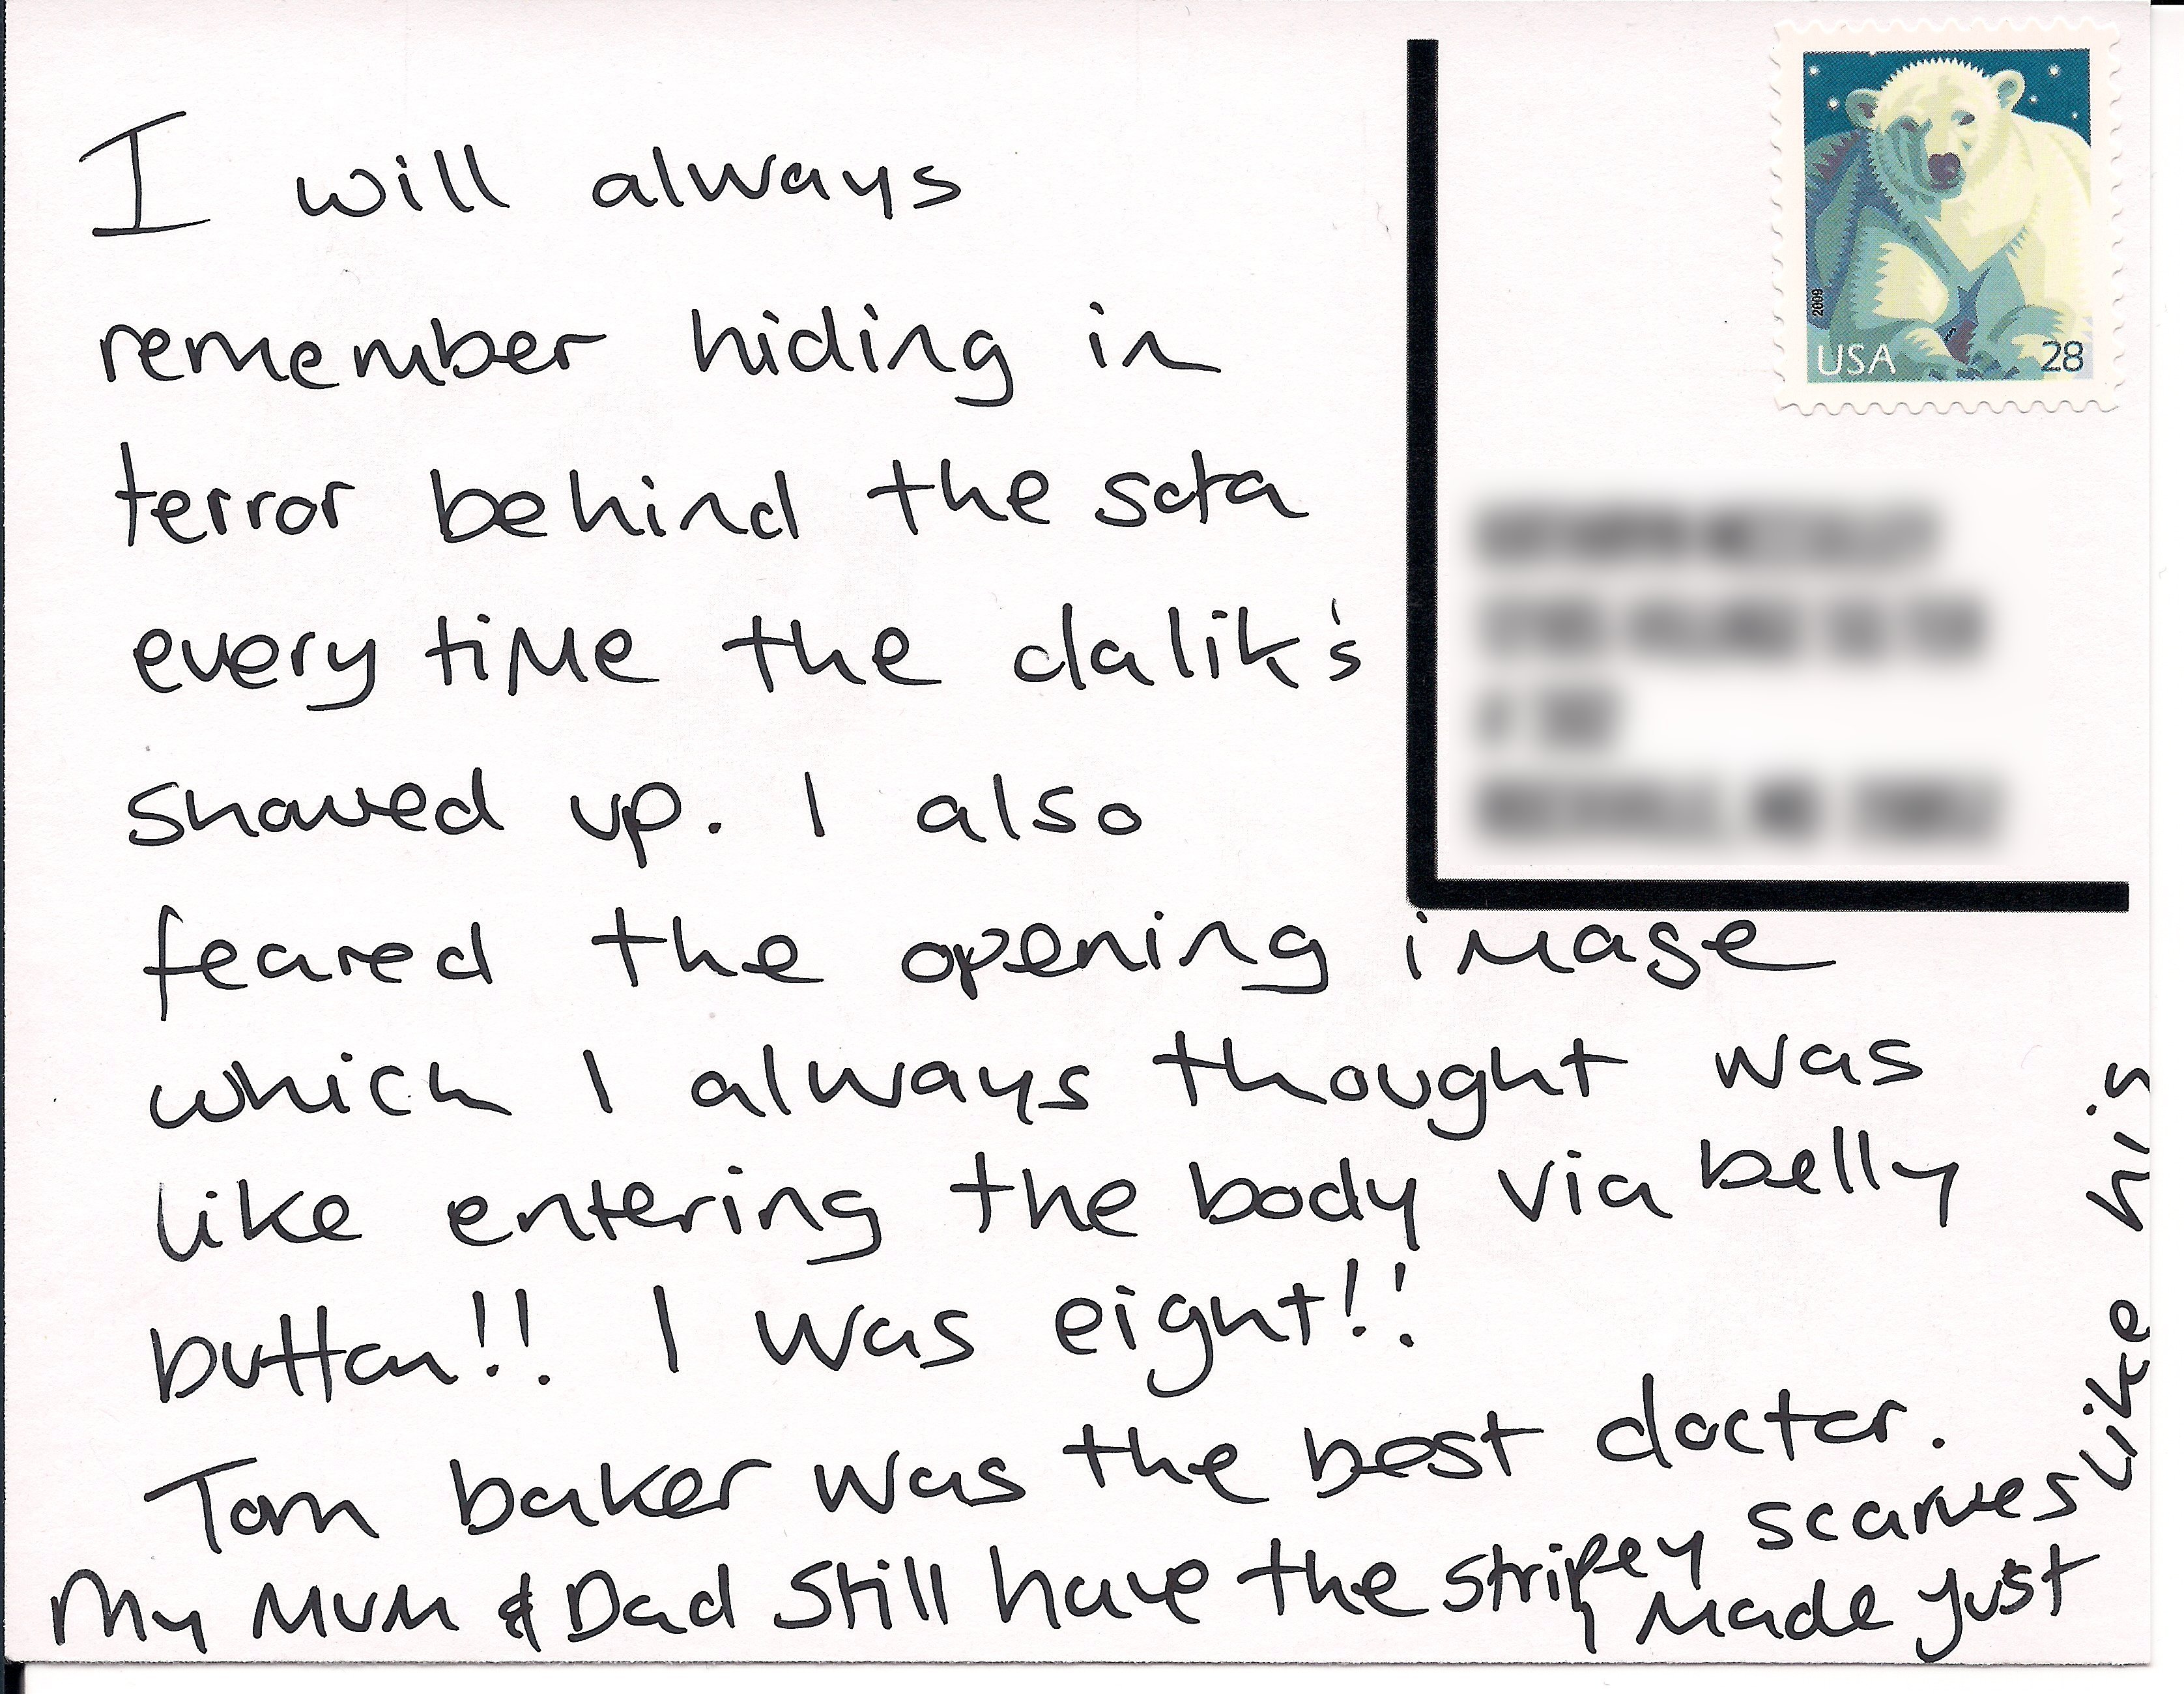 I will always
remember hiding in
terror behind the sofa
every time the dalik's
showed up. I also
feared the opening image
which I always thought was
like entering the body via belly
button!! I was eight!!
Tom baker was the best doctor.
My Mum & Dad still have the stripey scarves
Made just
like his
USA 28
2009